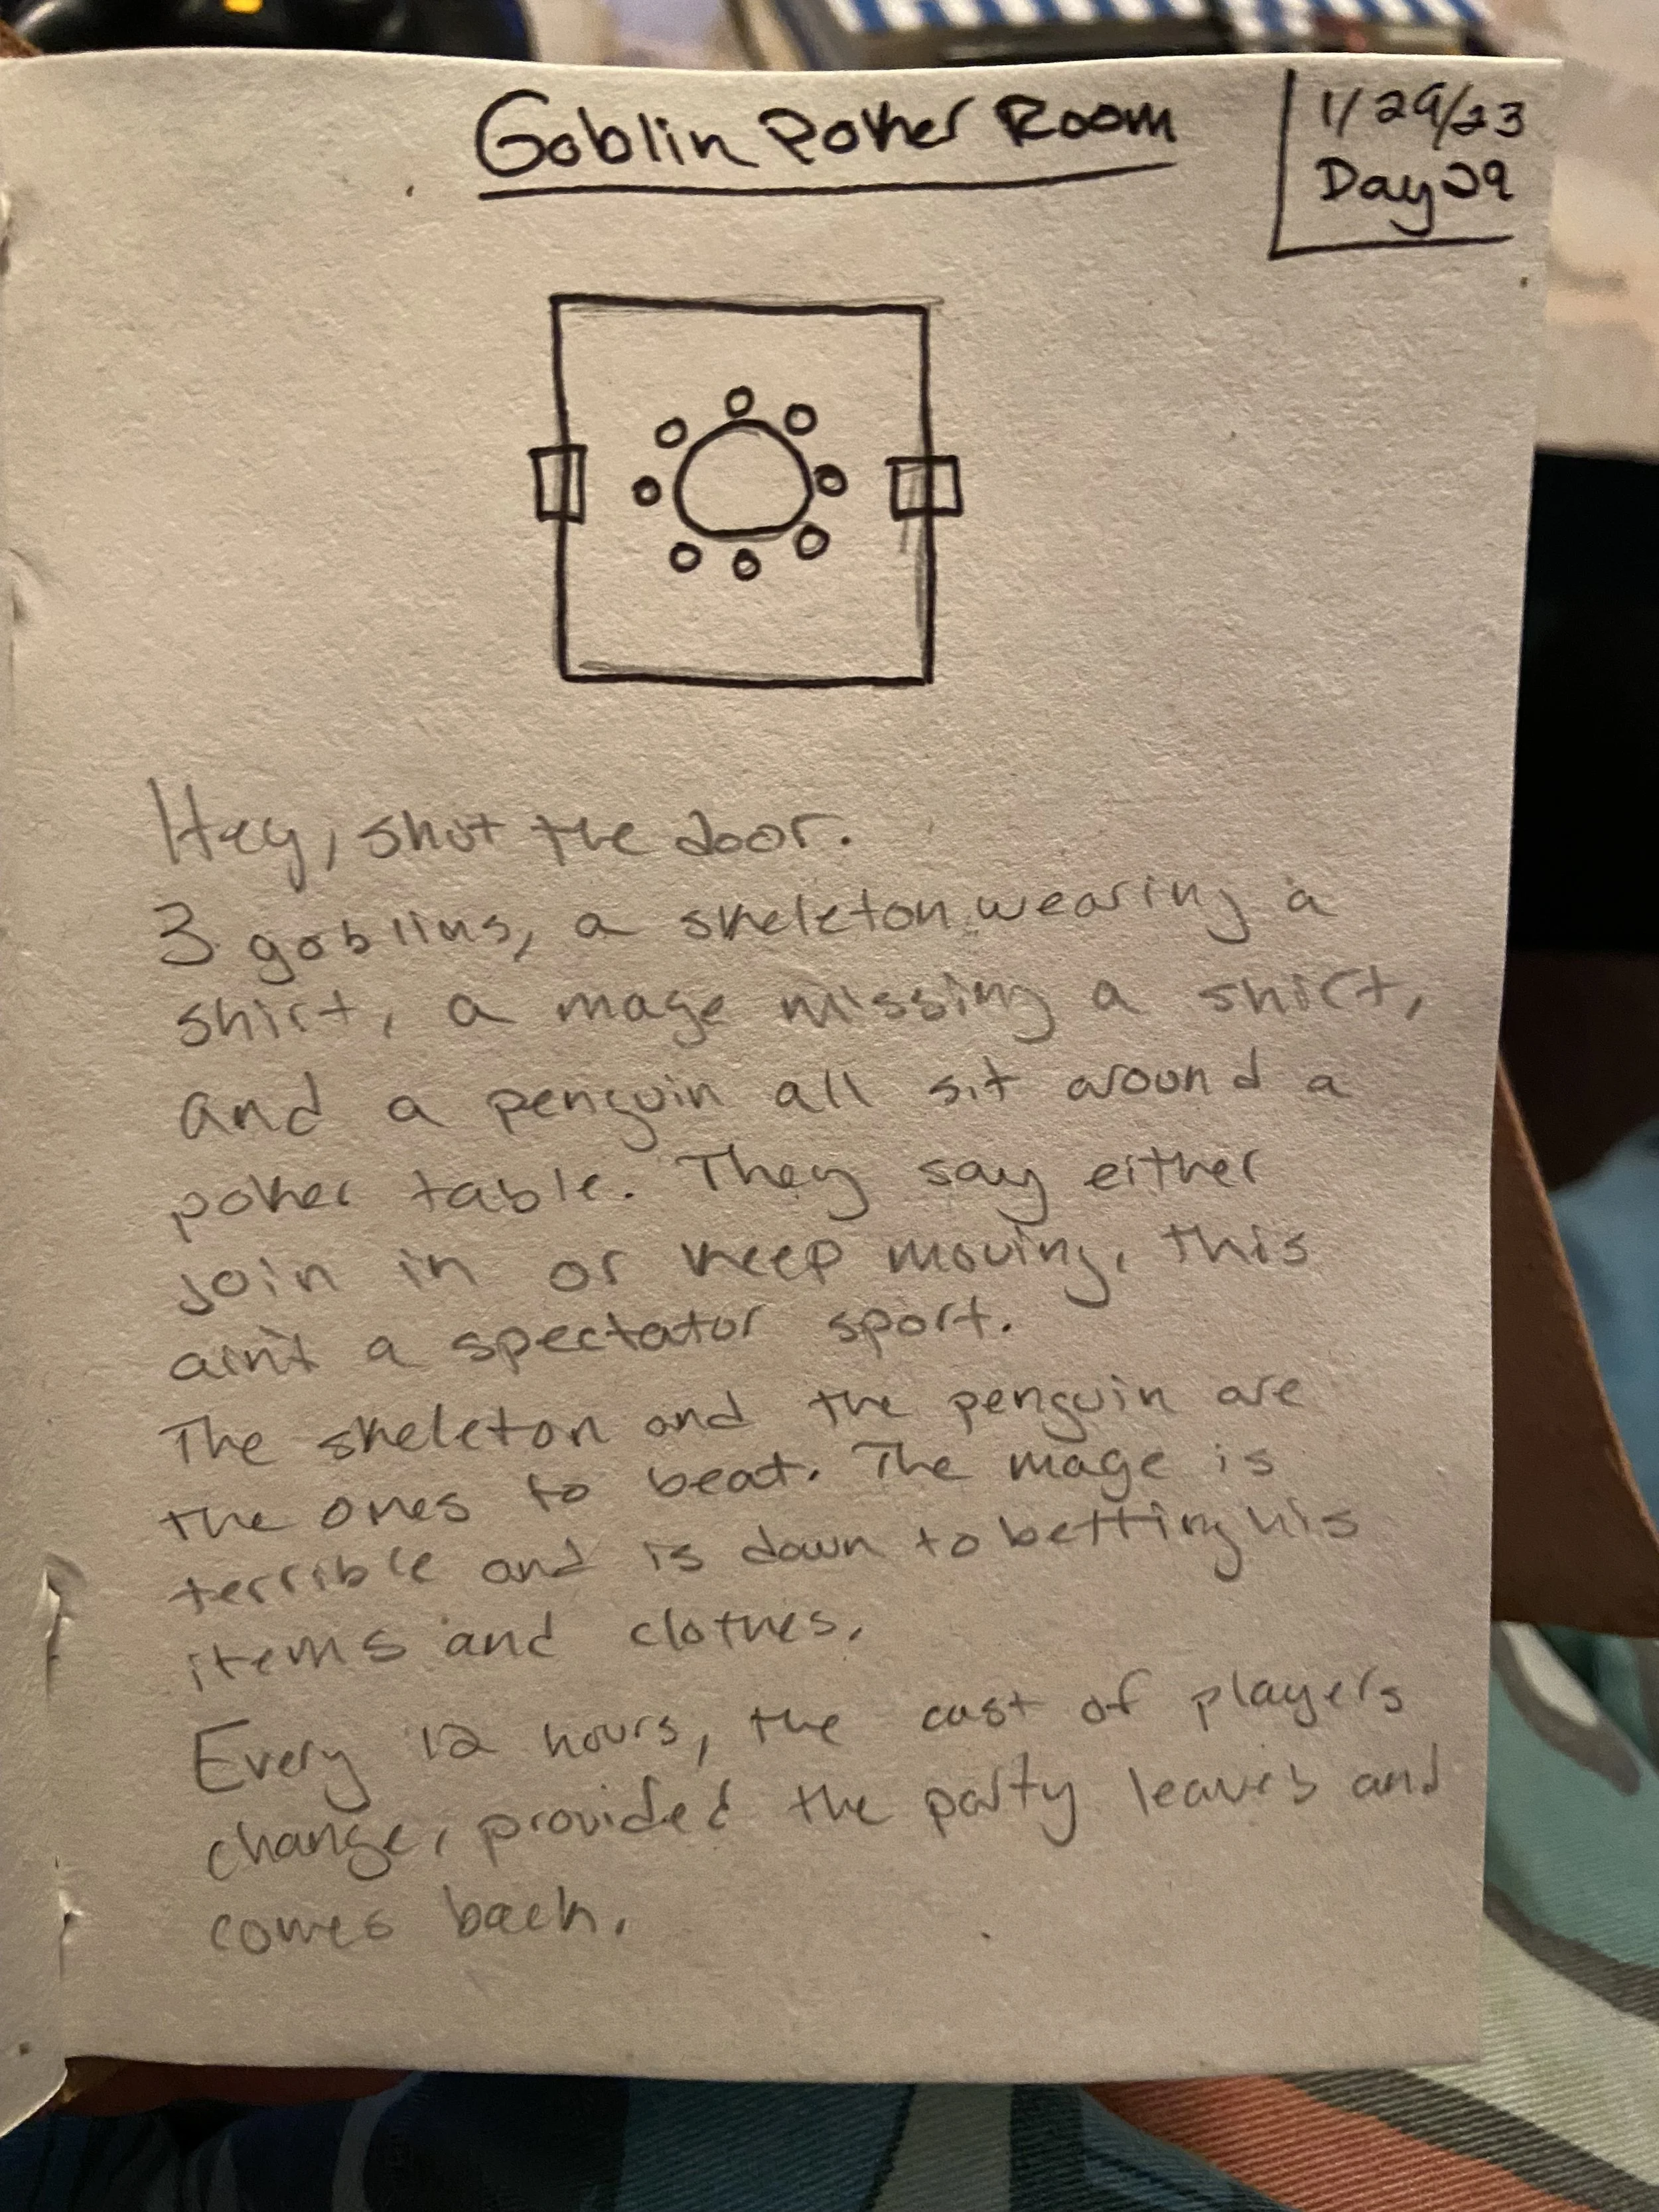 Goblin Poker Room
1/29/23
Day 29
Hey, shut the door.
3 goblins, a skeleton wearing a
shirt, a mage missing a shirt,
and a penguin all sit around a
poker table. They say either
join in or keep moving, this
ain't a spectator sport.
The skeleton and the penguin are
the ones to beat. The mage is
terrible and is down to betting his
items and clothes.
Every 12 hours, the cast of players
change, provided the party leaves and
comes back.